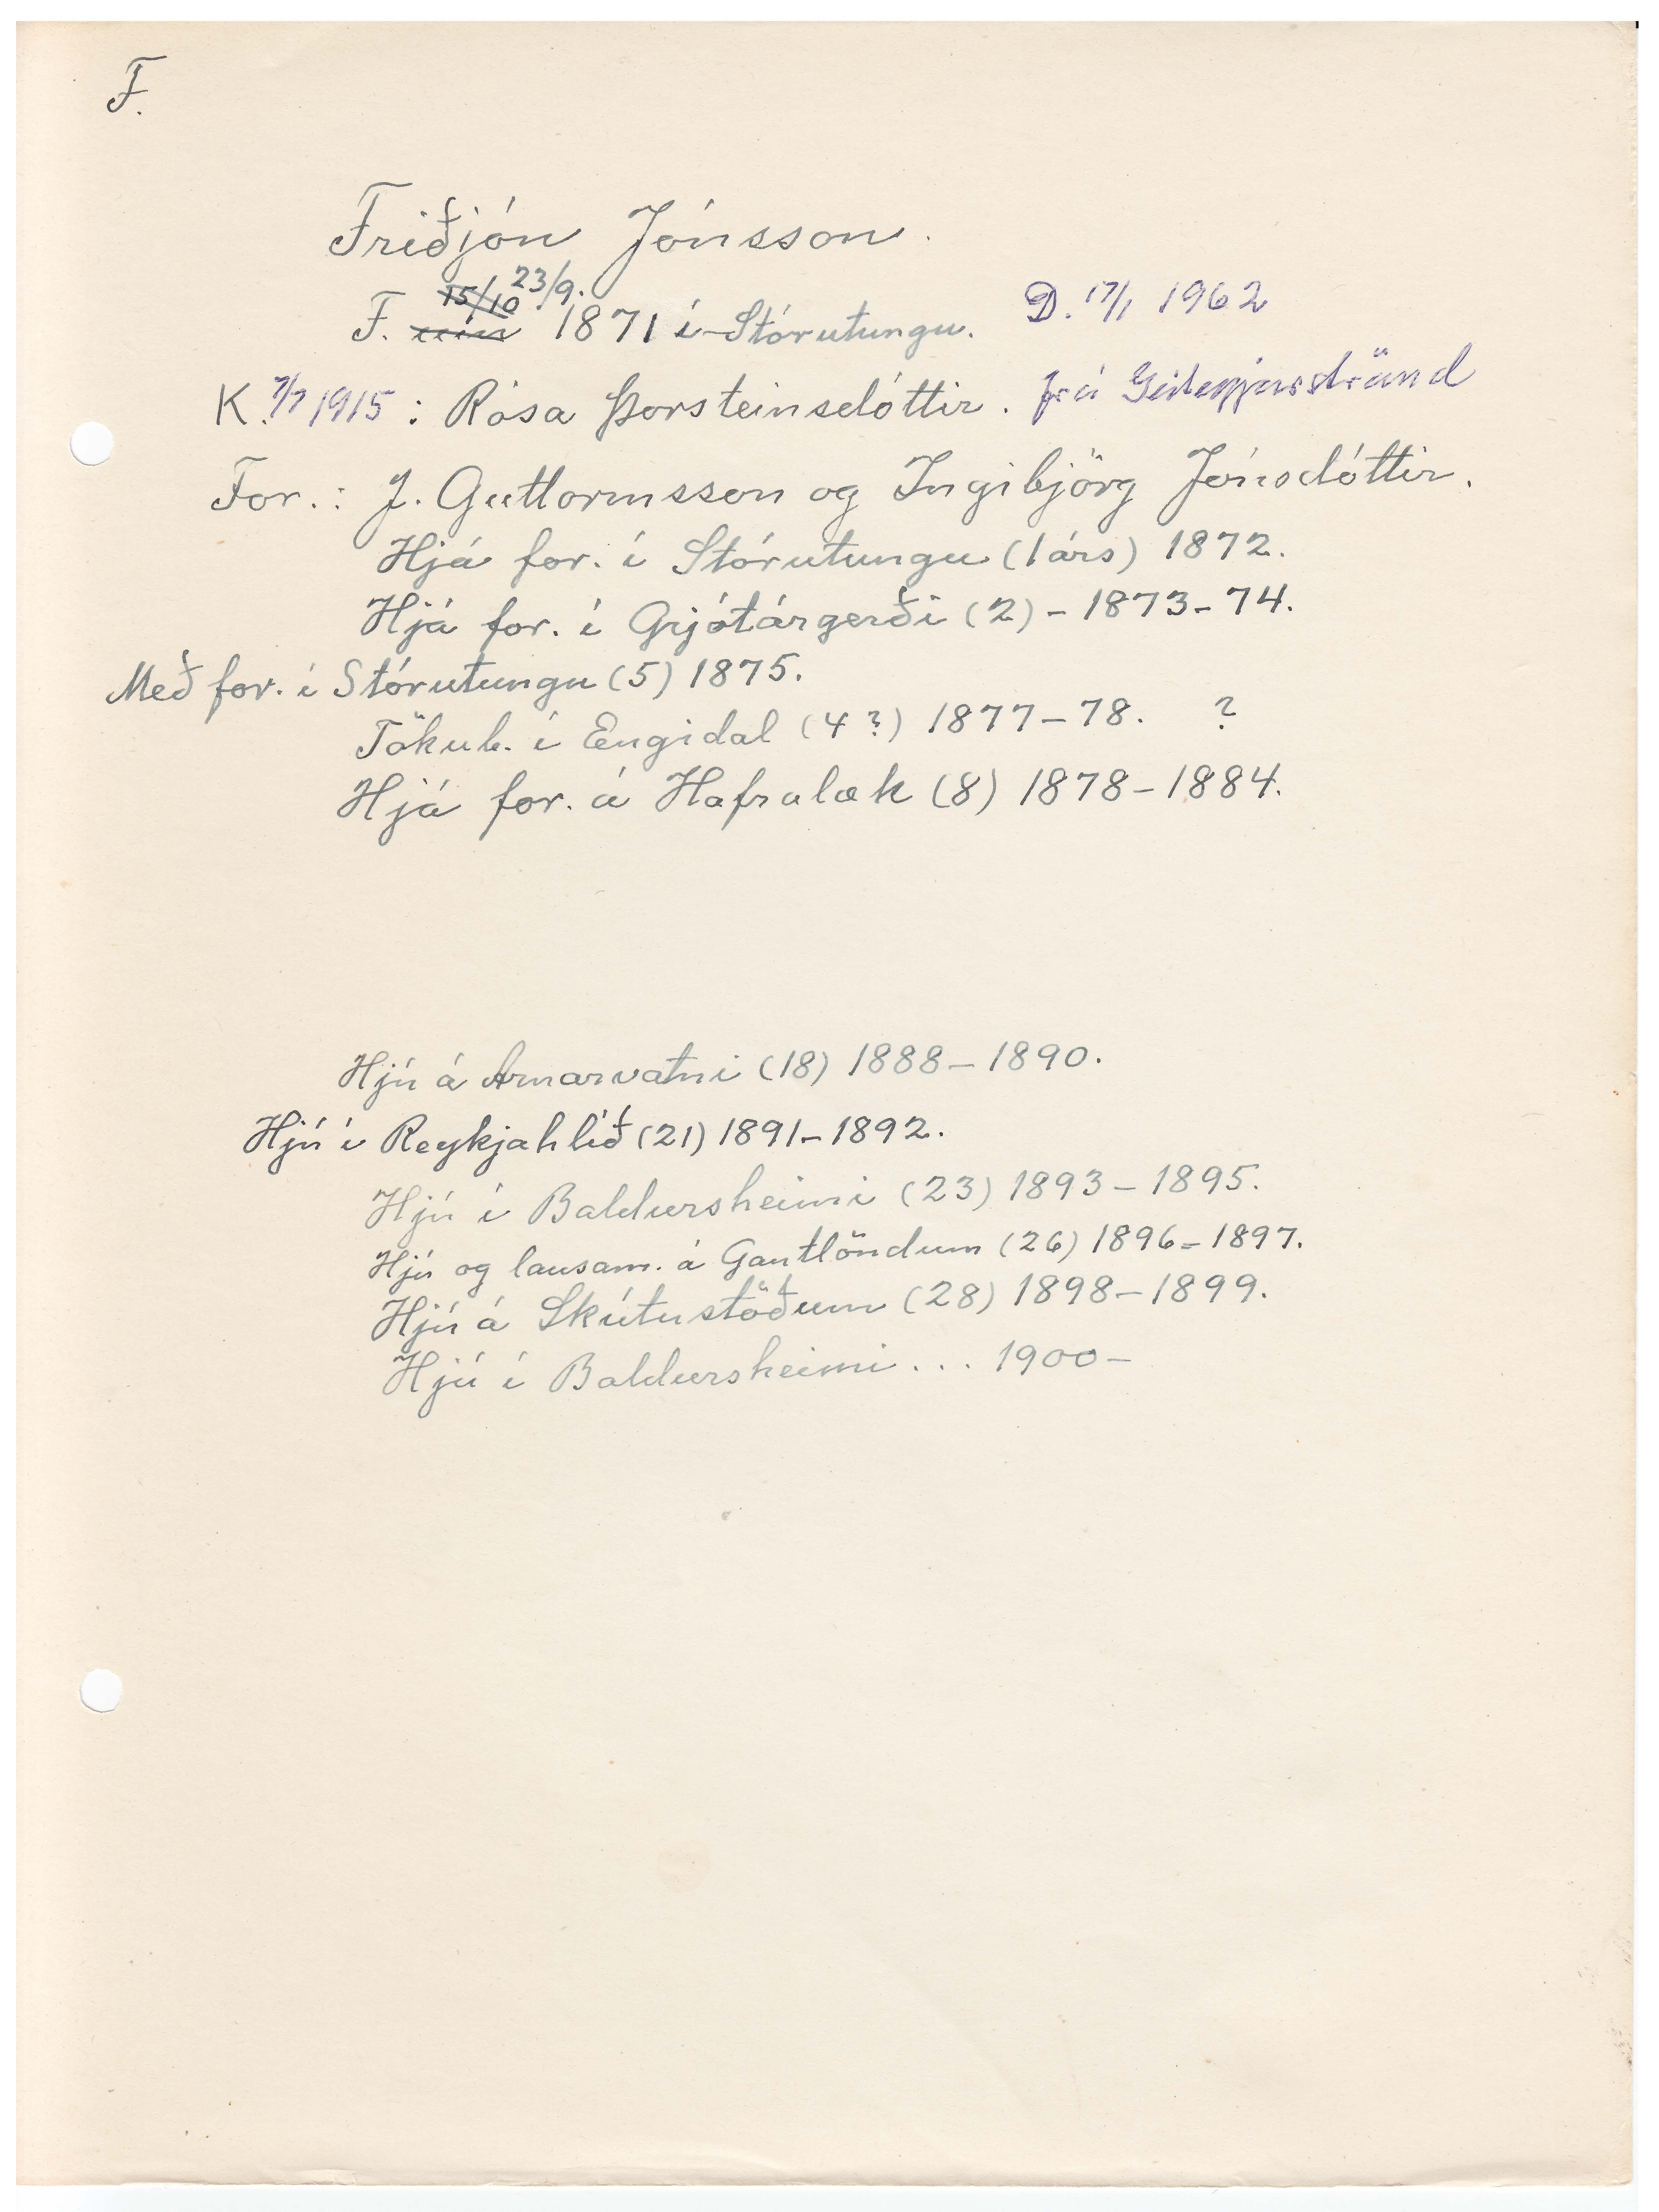 F.
Friðjón Jónsson.
15/10 23/9.
F. 1871 í Stórutungu. D. 17/1 1962
K. 7/7 1915 : Rósa Þorsteinsdóttir. frá
For.: J. Guttormsson og Ingibjörg Jónsdóttir.
Hjá for. í Stórutungu (1 árs) 1872.
Hjá for. í Grjótárgerði (2) - 1873-74.
Með for. í Stórutungu (5) 1875.
Tökub. í Engidal (4?) 1877-78. ?
Hjá for. á Hafralæk (8) 1878-1884.
Hjú á Arnarvatni (18) 1888-1890.
Hjú í Reykjahlíð (21) 1891-1892.
Hjú í Baldursheimi (23) 1893-1895.
Hjú og lausam. á Gautlöndum (26) 1896-1897.
Hjú á Skútustöðum (28) 1898-1899.
Hjú í Baldursheimi ... 1900-